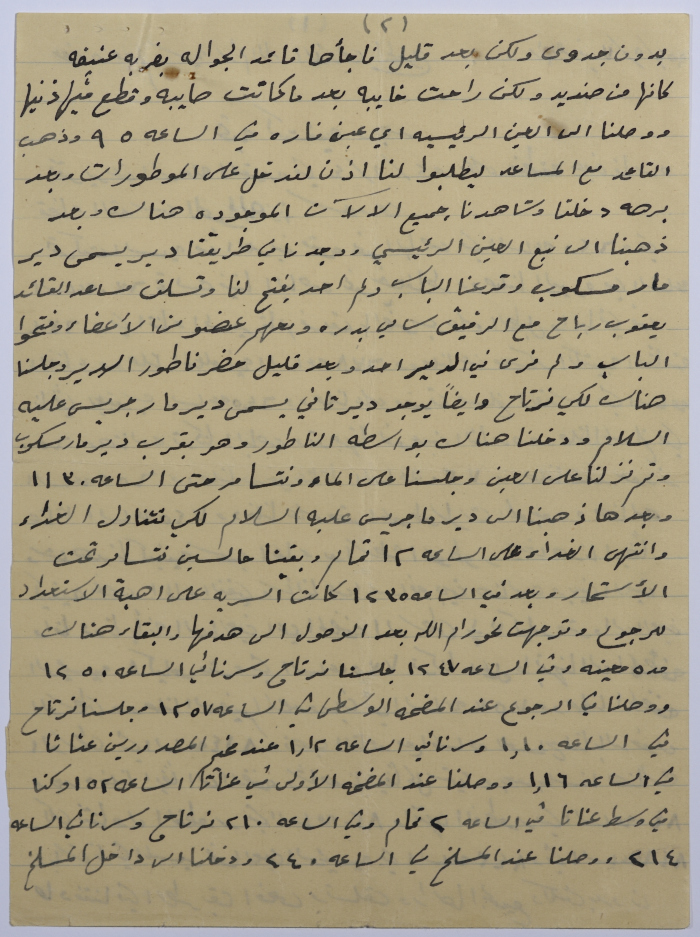 (٢)
بدون جدوى ولكن بعد قليل فاجأها قائد الجواله بضربه عنيفه
كانها من صنديد ولكن راحت خايبه بعد ما كانت صايبه وقطع
ووصلنا الى العين الرئيسيه اي عين فاره في الساعه ٩٥ وذهب
القائد مع المساعد ليطلبوا لنا اذن لندخل على الموطورات وبعد
برهه دخلنا وشاهدنا جميع الالآت الموجوده هناك وبعد
ذهبنا الى نبع العين الرئيسي ووجدنا في طريقنا دير يسمى دير
مار مسكوب وقرعنا الباب ولم احد يفتح لنا وتسلق مساعد القائد
يعقوب رباح مع الرفيق سامي بدره ومعهم عضو من الأعضاء وفتحوا
الباب ولم نرى في الدير احد وبعد قليل حضر ناطور الدير وجلسنا
هناك لكي نرتاح وايضاً يوجد دير ثاني يسمى دير مار جريس عليه
السلام ودخلنا هناك بواسطه الناطور وهو بقرب دير مار مسكوب
وثم نزلنا على العين وجلسنا على الماء ونتسامر حتى الساعه ١١٣٠
وبعدها ذهبنا الى دير ما جريس عليه السلام لكي نتناول الغذاء
وانتهى الغداء على الساعه ١٢ تمام وبقينا جالسين نتسامر تحت
الأشجار وبعد في الساعه ١٢٣٥ كانت السريه على اهبة الاستعداد
للرجوع وتوجهت نحو رام الله بعد الوصول الى هدفها والبقاء هناك
مده معينه وفي الساعه ١٢٤٧ جلسنا نرتاح وسرنا في الساعه ١٢٥٠
ووصلنا في الرجوع عند المضخه الوسطى في الساعه ١٢٥٧ وجلسنا نرتاح
في الساعه ١,١٠ وسرنا في الساعه ١,١٢ عند المصدرين عناتا
في الساعه ١,١٦ ووصلنا عند المضخه الأولى في عناتا الساعه ١٥٢ وكنا
في وسط عناتا في الساعه ٢ تمام وفي الساعه ٢١٠ نرتاح وسرنا في الساعه
٢١٤ ووصلنا عند المسلخ في الساعه ٢٤٠ ودخلنا الى داخل المسلخ